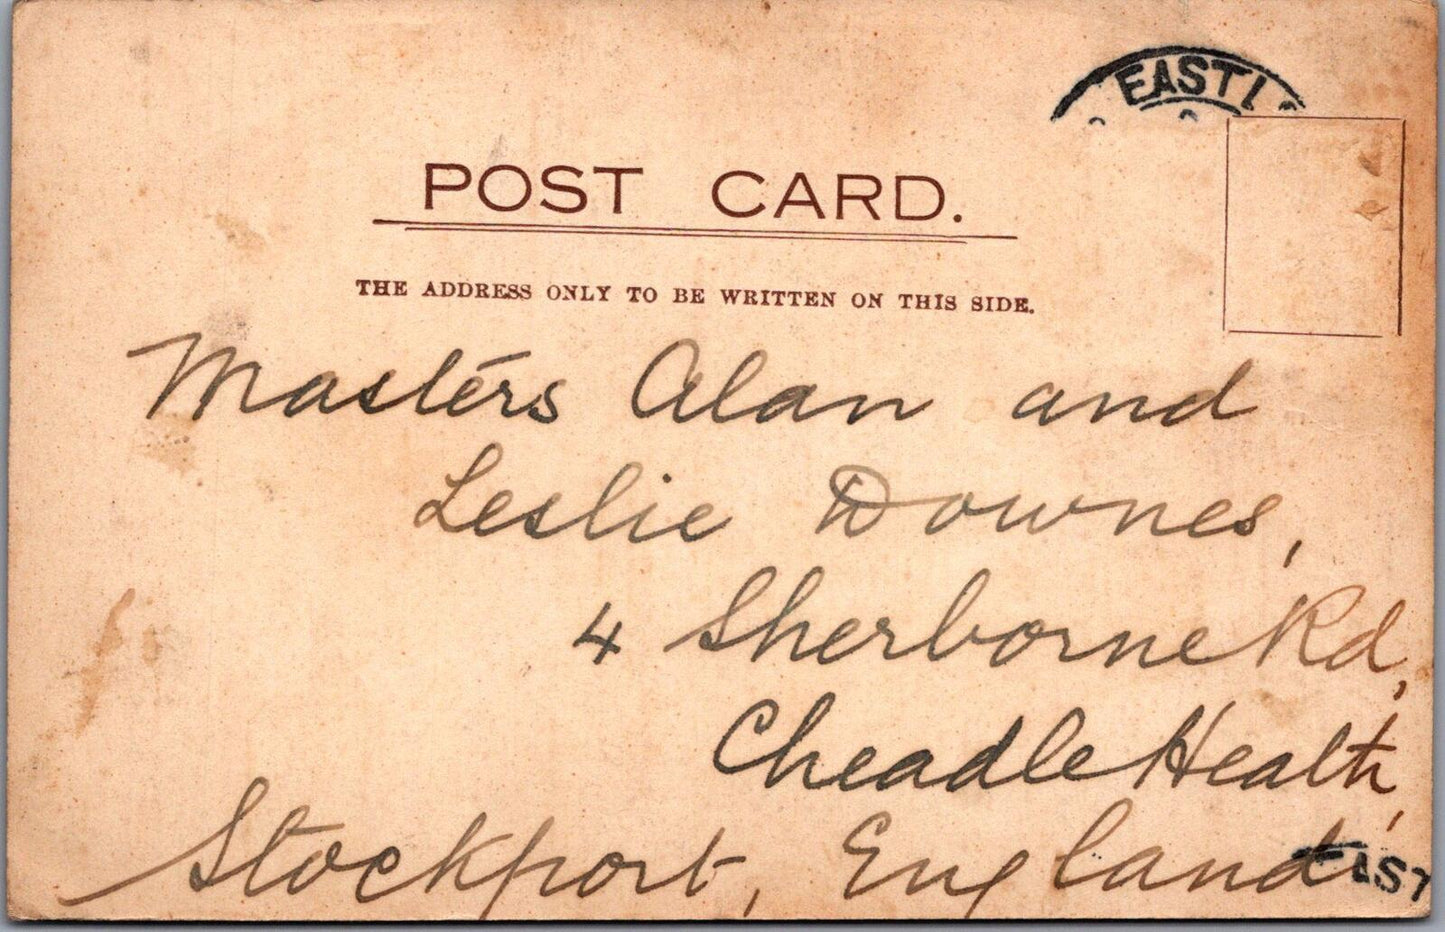 EAST L
POST CARD.
THE ADDRESS ONLY TO BE WRITTEN ON THIS SIDE.
Masters Alan and
Leslie Downes,
4 Sherborne Rd,
Cheadle Health,
Stockport, England
EAST